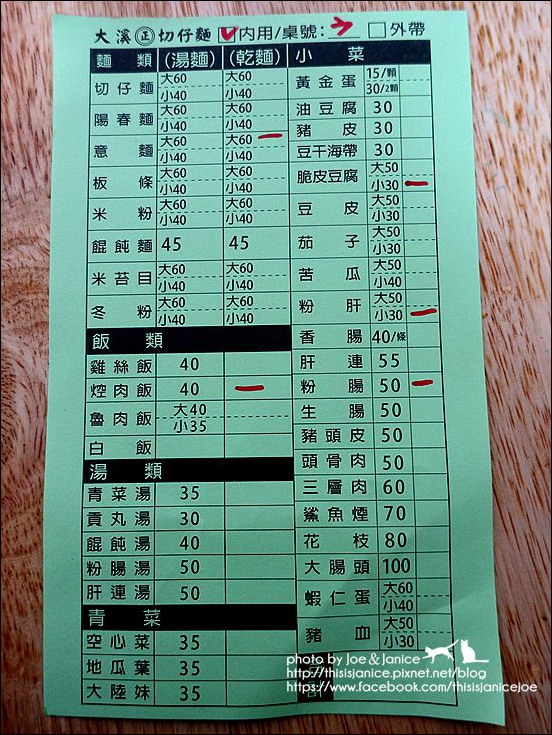 大溪㊣切仔麵 內用/桌號: 外帶
麵類 (湯麵) (乾麵)
切仔麵 大60 小40 大60 小40
陽春麵 大60 小40 大60 小40
意麵 大60 小40 大60 小40
板條 大60 小40 大60 小40
米粉 大60 小40 大60 小40
餛飩麵 45 45
米苔目 大60 小40 大60 小40
冬粉 大60 小40 大60 小40
飯類
雞絲飯 40
焢肉飯 40
魯肉飯 大40 小35
白飯
湯類
青菜湯 35
貢丸湯 30
餛飩湯 40
粉腸湯 50
肝連湯 50
青菜
空心菜 35
地瓜葉 35
大陸妹 35
小菜
黃金蛋 15/顆 30/2顆
油豆腐 30
豬皮 30
豆干海帶 30
脆皮豆腐 大50 小30
豆皮 大50 小30
茄子 大50 小30
苦瓜 大50 小30
粉肝 大50 小30
香腸 40/條
肝連 55
粉腸 50
生腸 50
豬頭皮 50
頭骨肉 50
三層肉 60
鯊魚煙 70
花枝 80
大腸頭 100
蝦仁蛋 大60 小40
豬血 大50 小30
photo by Joe & Janice
http://thisisjanice.pixnet.net/blog
https://www.facebook.com/thisisjanicejoe